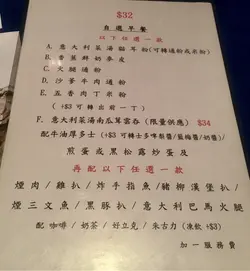 $32
自選早餐
以下任選一款
A. 意大利菜湯貓耳粉(可轉通粉或米粉)
B. 香蕉鮮奶麥皮
C. 火腿通粉
D. 沙薑牛肉通粉
E. 五香肉丁米粉
(+$3 可轉出前一丁)
F. 意大利菜湯南瓜茸雲吞(限量供應) $34
配牛油厚多士(+$3 可轉士多啤梨醬/藍莓醬/奶醬)
煎蛋或黑松露炒蛋及
再配以下任選一款
煙肉/雞扒/炸手指魚/豬柳漢堡扒/
煙三文魚/黑豚扒/意大利巴馬火腿
配 咖啡/奶茶/好立克/朱古力(凍飲+$3)
加一服務費